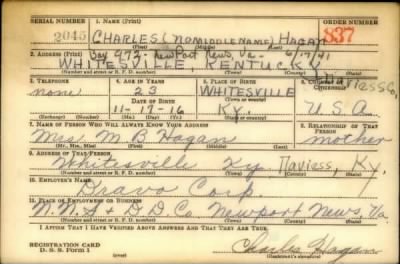 SERIAL NUMBER 1. NAME (Print) ORDER NUMBER
2045 CHARLES (NO MIDDLE NAME) HAGAN 837
(First) (Middle) (Last)
2. ADDRESS (Print) Box 973, Newport News, Va. 6/17/41
WHITESVILLE, KENTUCKY Daviess Co.
(Number and street or R. F. D. number) (Town) (County) (State)
3. TELEPHONE 4. AGE IN YEARS 5. PLACE OF BIRTH 6. COUNTRY OF CITIZENSHIP
none 23 WHITESVILLE
DATE OF BIRTH (Town or county)
11-17-16 KY. U.S.A
(Exchange) (Number) (Mo.) (Day) (Yr.) (State or country)
7. NAME OF PERSON WHO WILL ALWAYS KNOW YOUR ADDRESS 8. RELATIONSHIP OF THAT PERSON
Mrs. M. B. Hagan mother
(Mr., Mrs., Miss) (First) (Middle) (Last)
9. ADDRESS OF THAT PERSON
Whitesville Ky. Daviess, Ky.
(Number and street or R. F. D. number) (Town) (County) (State)
10. EMPLOYER'S NAME
Dravo Corp.
11. PLACE OF EMPLOYMENT OR BUSINESS
N.N.S & D.D. Co Newport News, Va
(Number and street or R. F. D. number) (Town) (County) (State)
I AFFIRM THAT I HAVE VERIFIED ABOVE ANSWERS AND THAT THEY ARE TRUE.
REGISTRATION CARD
D. S. S. Form 1 Charles Hagan
(Registrant's signature)